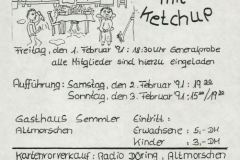 mit
Ketchup
Freitag, den 1. Februar '91: 18:30 Uhr Generalprobe
alle Mitglieder sind hierzu eingeladen
Aufführung: Samstag, den 2. Februar '91: 19 30
Sonntag, den 3. Februar '91: 15 00 / 19 30
Gasthaus Semmler Eintritt:
Altmorschen Erwachsene: 5,- DM
Kinder : 3,- DM
Kartenvorverkauf: Radio Döring, Altmorschen